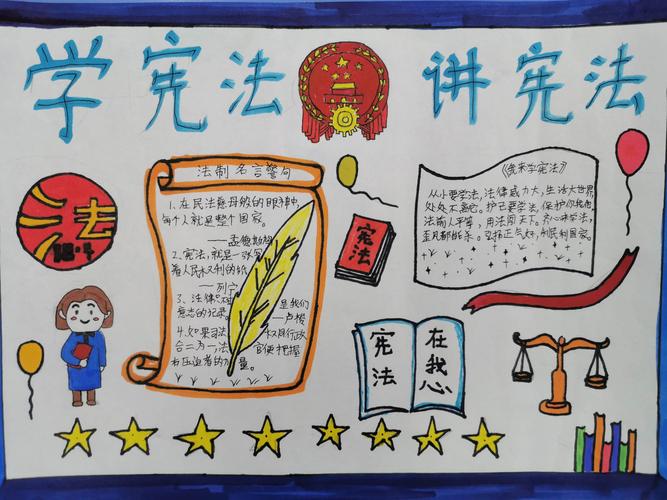 学宪法 讲宪法
法
12·4
法制名言警句
1、在民法慈母般的眼神中,
每个人就是整个国家。
——孟德斯鸠
2、宪法,就是一张写
着人民权利的纸
——列宁
3、法律 是我们
意志的记录。 —卢梭
4、如果司法 权同行政
合二为一,法 官便把握
有压迫者的力量。
宪法
《我来学宪法》
从小要学法,法律威力大,生活大世界
处处不离它。护己要学法,保护你我他。
法前人平等,用法闯天下。齐心 学法,
歪风都能杀。坚持正气好,利民利国家。
宪法
在我心